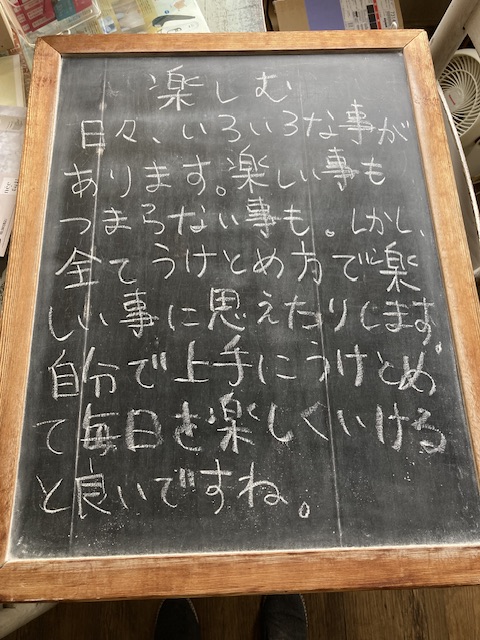 楽しむ
日々、いろいろな事が
あります。楽しい事も
つまらない事も。しかし、
全てうけとめ方で楽
しい事に思えたりします。
自分で上手にうけとめ
て毎日を楽しくいける
と良いですね。